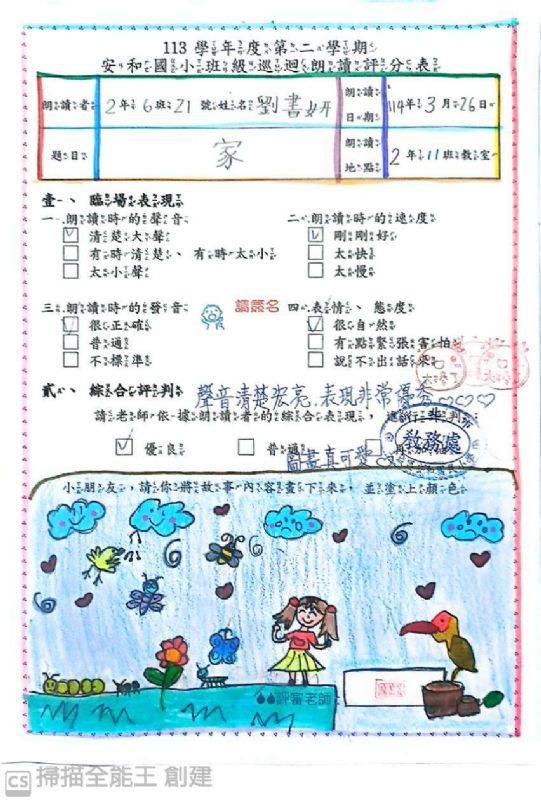 113學年度第二學期
安和國小班級巡迴朗讀評分表
朗讀者 2年6班21號姓名劉書妍 朗讀日期 114年3月26日
題目 家 朗讀地點 2年11班教室
壹、臨場表現
一.朗讀時的聲音 二.朗讀時的速度
清楚大聲 剛剛好
有時清楚、有時太小 太快
太小聲 太慢
三.朗讀時的發音 請簽名 四.表情、態度
很正確 很自然
普通 有點緊張害怕
不標準 說不出話來
貳、綜合評判 聲音清楚宏亮.表現非常優秀♡♡♡
請老師依據朗讀者的綜合表現,進行評判
優良 普通
圖畫真可愛
教務處
小朋友,請你將故事內容畫下來,並塗上顏色
評審老師
CS 掃描全能王 創建